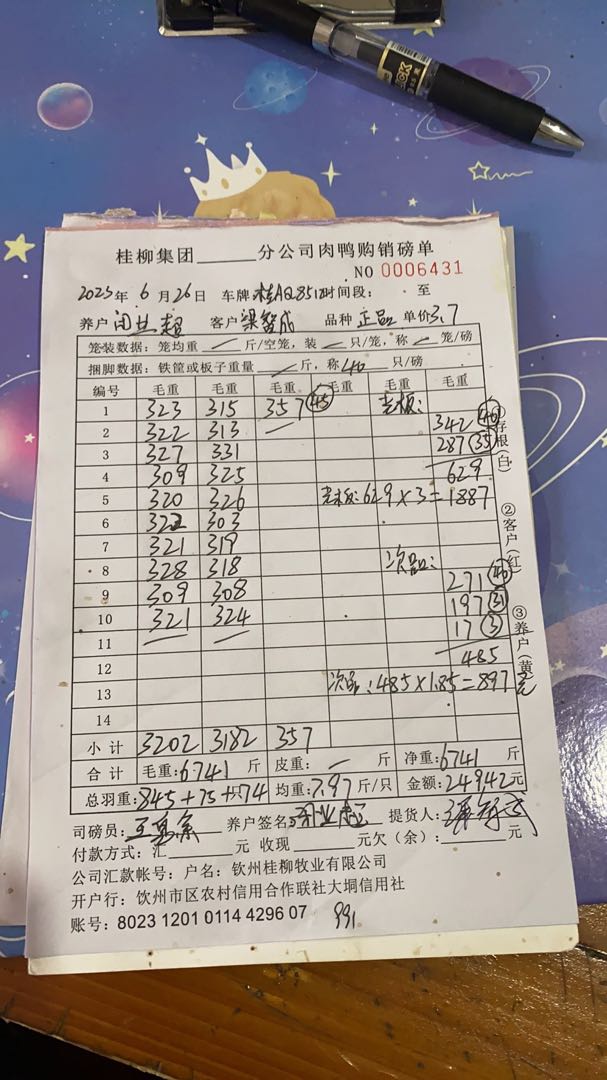 桂柳集团______分公司肉鸭购销磅单
NO 0006431
2025年 6月26日 车牌 桂AQ8512 时间段： 至
养户 闭业超 客户 梁智成 品种 正品 单价 3.7
笼装数据：笼均重 斤/空笼，装 只/笼，称 笼/磅
捆脚数据：铁筐或板子重量 斤，称 40 只/磅
编号 毛重 毛重 毛重 毛重 毛重 毛重
1 323 315 357 (45) 老板：
2 322 313 342 (40)
3 327 331 287 (35)
4 309 325 629
5 320 326 老板：629×3=1887
6 322 303
7 321 319
8 328 318 次品： 271 (40)
9 309 308 197 (31)
10 321 324 17 (3)
11 485
12
13 次品：485×1.85=897元
14
小计 3202 3182 357
合计 毛重：6741 斤 皮重： 斤 净重：6741 斤
总羽重：845+75+74 均重：7.97斤/只 金额：24942元
司磅员： 养户签名： 闭业超 提货人：
付款方式：汇______元 收现______元欠（余）：______元
公司汇款帐号：户名：钦州桂柳牧业有限公司
开户行：钦州市区农村信用合作联社大垌信用社
账号：8023 1201 0114 4296 07 991
①存根（白） ②客户（红） ③养户（黄）